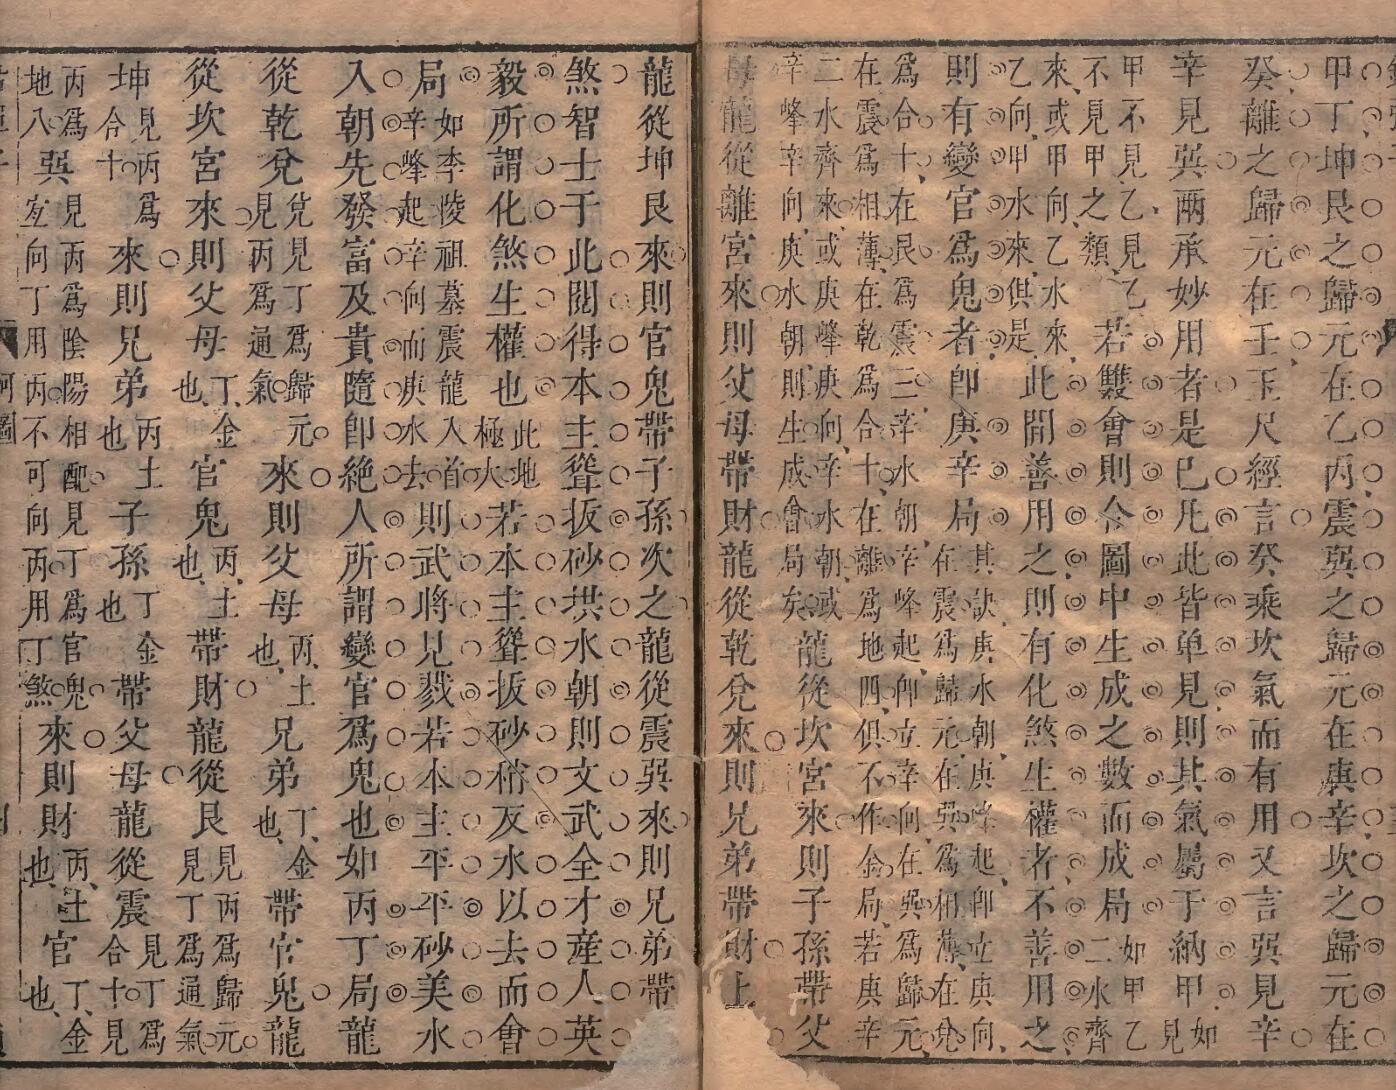 甲丁坤艮之歸元在乙丙震巽之歸元在庚辛坎之歸元在
癸離之歸元在壬玉尺經言癸乘坎氣而有用又言巽見辛
辛見巽兩承妙用者是巳凡此皆单見則其氣屬于納甲如見
甲不見乙見乙不見甲之類若雙會則合圖中生成之數而成局如甲乙二水齊
來或甲向乙水來乙向甲水來俱是此間善用之則有化煞生權者不善用之
則有變官爲鬼者卽庚辛局其訣庚水朝庚峰起卽立庚向在震爲歸元在巽爲相薄在兌
爲合十在艮爲震三辛水朝辛峰起卽立辛向在巽爲歸元在震爲相薄在乾爲合十在離爲地四俱不作金局若庚辛
二水齊來或庚峰庚向辛水朝或辛峰辛向庚水朝則生成會局矣龍從坎宮來則子孫帶父
母龍從離宮來則父母帶財龍從乾兌來則兄弟帶財上
龍從坤艮來則官鬼帶子孫次之龍從震巽來則兄弟帶
煞智士于此閱得本主聳拔砂拱水朝則文武全才産人英
毅所謂化煞生權也此地極大若本主聳拔砂稍反水以去而會
局如李陵祖墓震龍入首辛峰起辛向而庚水去則武將見戮若本主平平砂美水
入朝先發富及貴隨卽絶人所謂變官爲鬼也如丙丁局龍
從乾兌兌見丁爲歸元見丙爲通氣來則父母丙土也兄弟丁金也帶官鬼龍
從坎宮來則父母丁金也官鬼丙土也帶財龍從艮見丙爲歸元見丁爲通氣
坤見丙爲合十來則兄弟丙土也子孫丁金也帶父母龍從震見丁爲合十見
丙爲地八巽見丙爲陰陽相配見丁爲官鬼宜向丁用丙不可向丙用丁煞來則財丙土也官丁金也